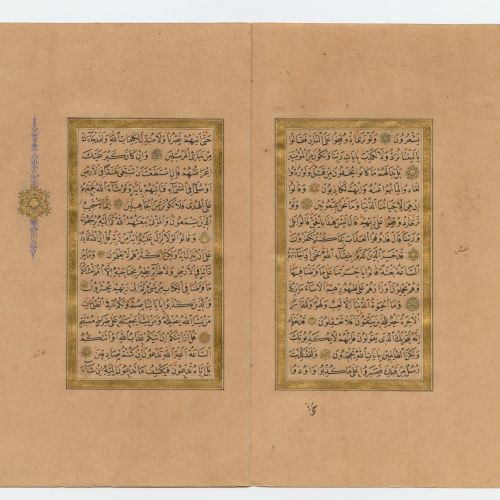 يشعرون ولو ترى إذ وقفوا على النار فقالوا
يا ليتنا نرد ولا نكذب بآيات ربنا ونكون من المؤمنين
بل بدا لهم ما كانوا يخفون من قبل ولو ردوا
لعادوا لما نهوا عنه وإنهم لكاذبون وقالوا
إن هي إلا حياتنا الدنيا وما نحن بمبعوثين ولو
ترى إذ وقفوا على ربهم قال أليس هذا بالحق قالوا بلى
وربنا قال فذوقوا العذاب بما كنتم تكفرون
قد خسر الذين كذبوا بلقاء الله حتى إذا جاءتهم
الساعة بغتة قالوا يا حسرتنا على ما فرطنا فيها
وهم يحملون أوزارهم على ظهورهم ألا ساء ما يزرون
وما الحيوة الدنيا إلا لعب ولهو وللدار
الآخرة خير للذين يتقون أفلا تعقلون قد نعلم
إنه ليحزنك الذي يقولون فإنهم لا يكذبونك
ولكن الظالمين بآيات الله يجحدون ولقد كذبت
رسل من قبلك فصبروا على ما كذبوا وأوذوا
حتى
حتى أتيهم نصرنا ولا مبدل لكلمات الله ولقد جاءك
من نبإ المرسلين وإن كان كبر عليك
إعراضهم فإن استطعت أن تبتغي نفقا في الأرض
أو سلما في السماء فتأتيهم بآية ولو شاء الله لجمعهم
على الهدى فلا تكونن من الجاهلين إنما يستجيب
الذين يسمعون والموتى يبعثهم الله ثم إليه يرجعون
وقالوا لولا نزل عليه آية من ربه قل إن الله قادر
على أن ينزل آية ولكن أكثرهم لا يعلمون وما من
دابة في الأرض ولا طائر يطير بجناحيه إلا أمم أمثالكم
ما فرطنا في الكتاب من شيء ثم إلى ربهم يحشرون
والذين كذبوا بآياتنا صم وبكم في الظلمات
من يشإ الله يضلله ومن يشأ يجعله على صراط مستقيم
قل أرأيتكم إن أتيكم عذاب الله أو أتتكم
الساعة أغير الله تدعون إن كنتم صادقين
بل إياه تدعون فيكشف ما تدعون إليه إن شاء